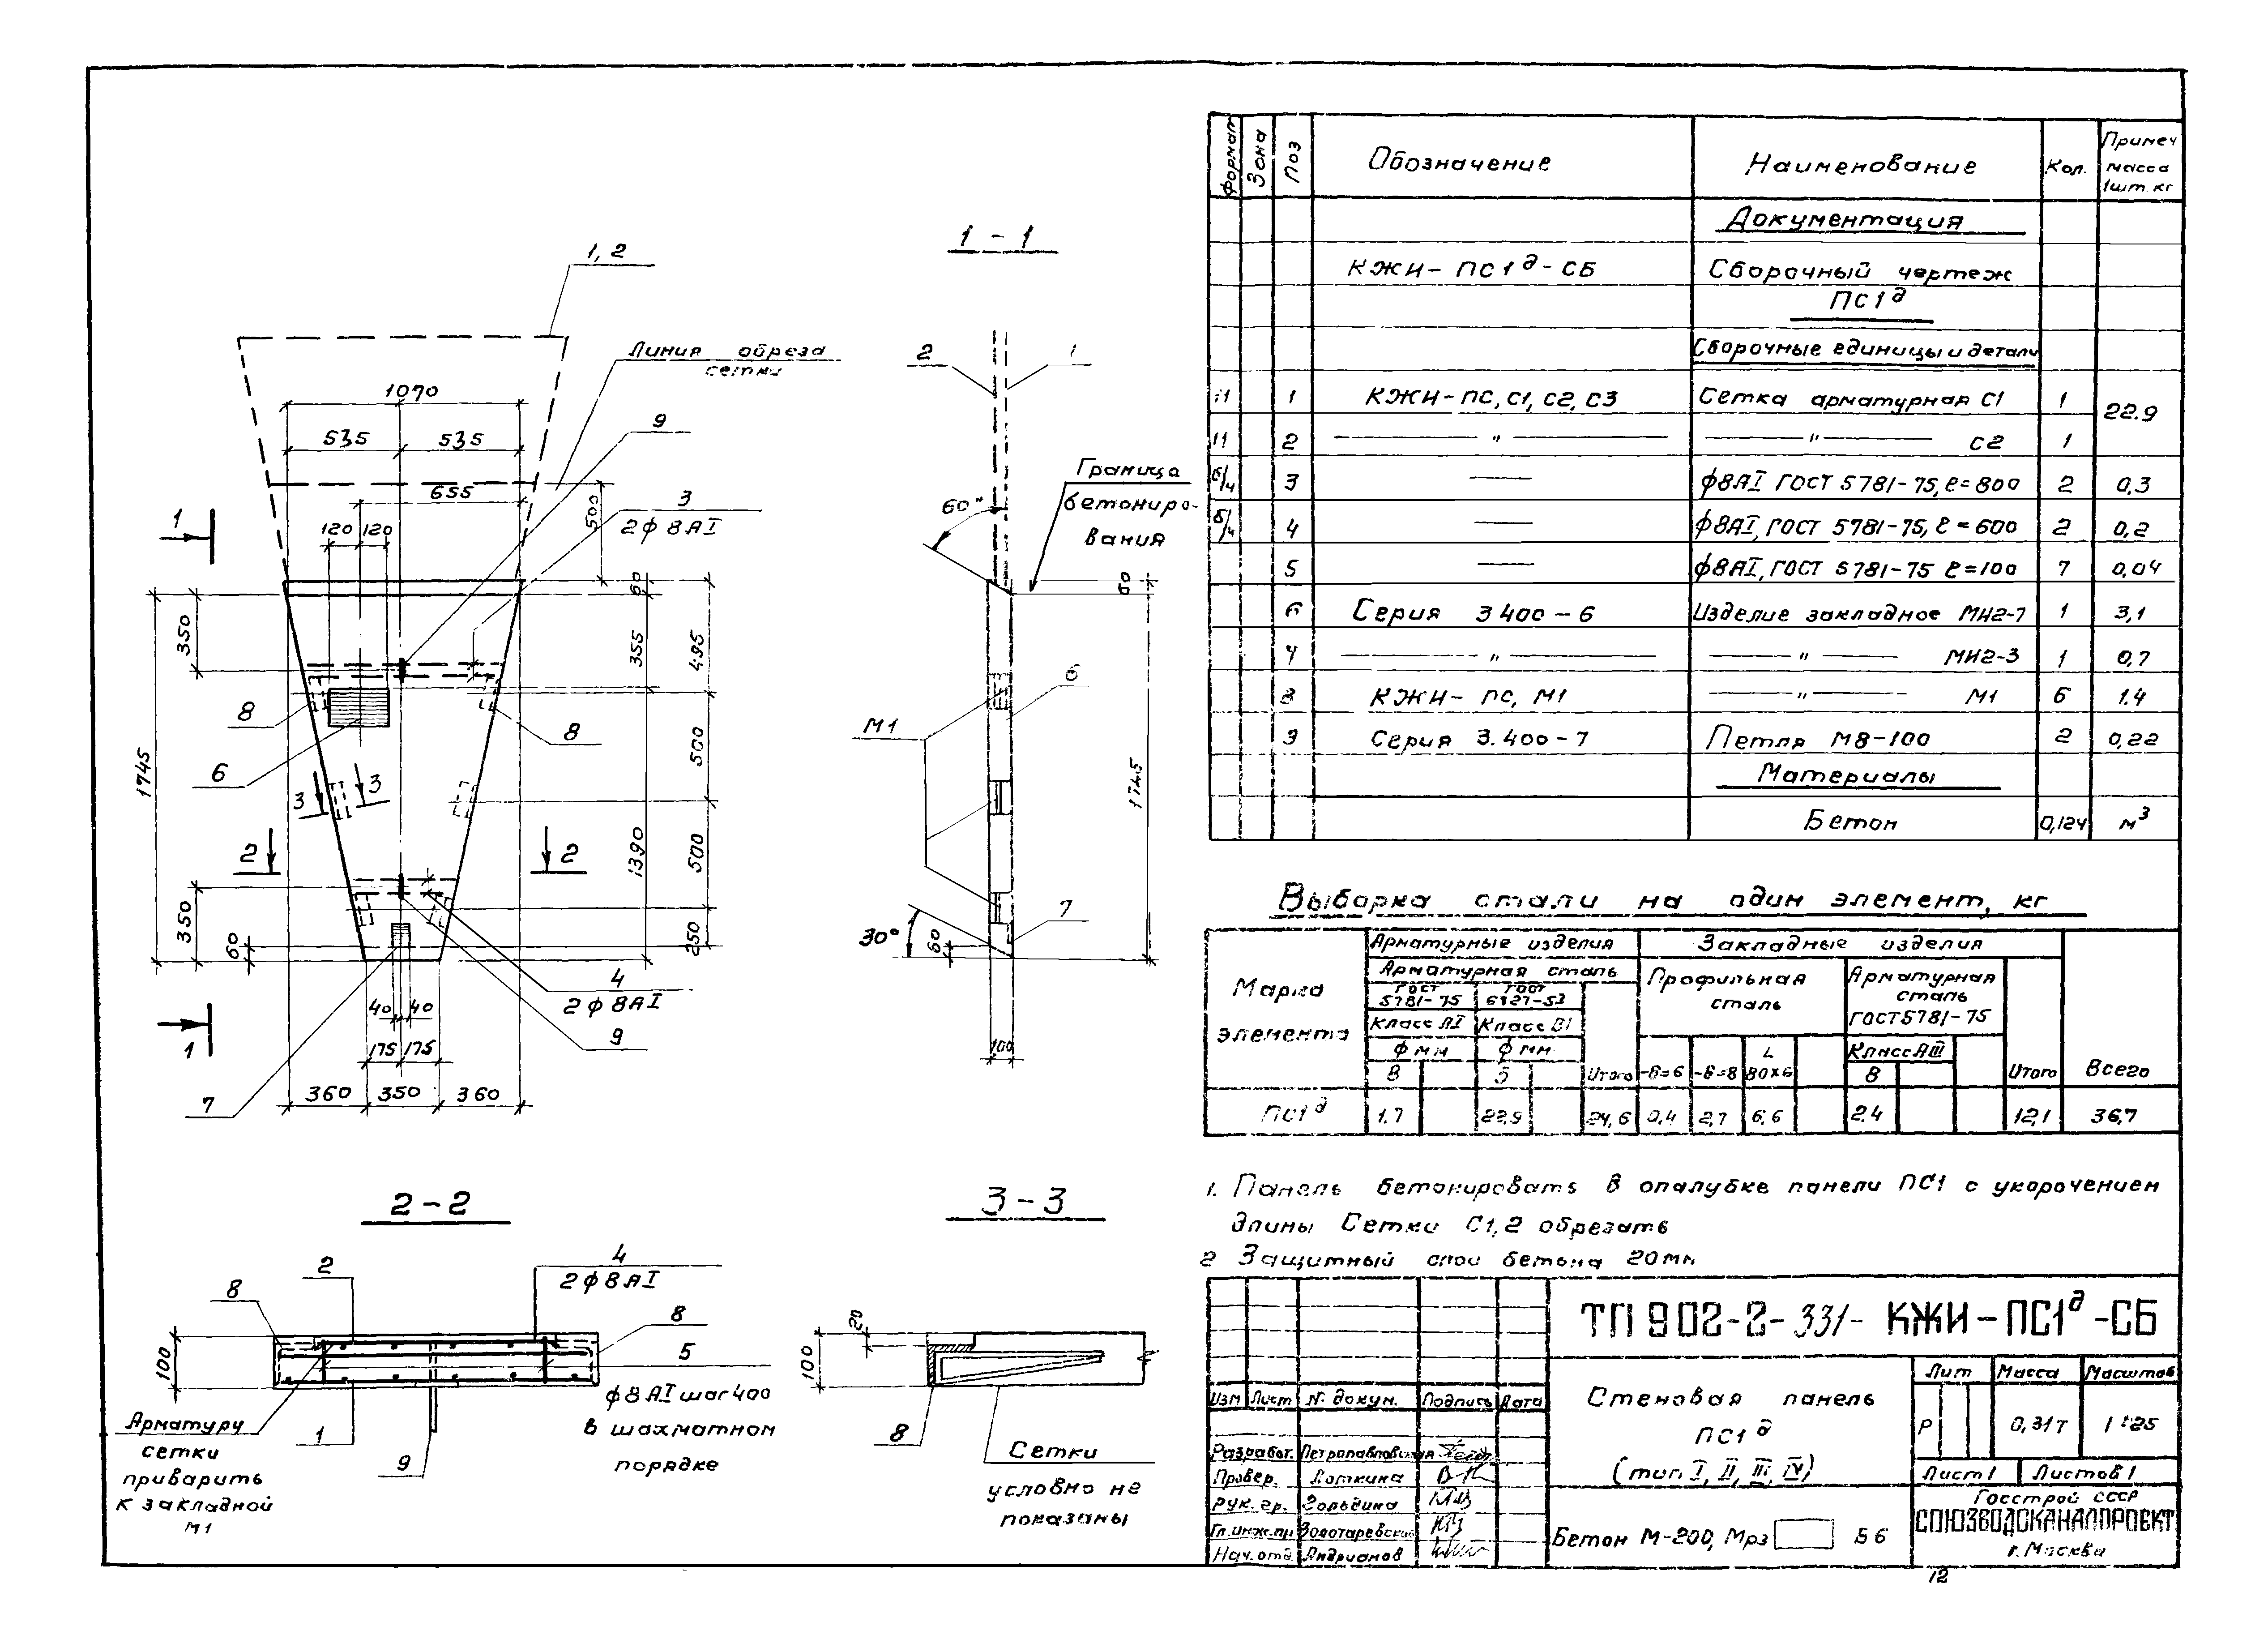 1, 2
Линия обреза
сетки
1070
535
535
9
655
3
2ф8АI
500
120
120
1
60
350
355
495
8
8
6
500
3
3
1745
2
2
1390
500
350
60
250
4
2ф8АI
9
40
40
175
175
7
360
350
360
1
1-1
2
1
Граница
бетониро-
вания
60°
60
6
М1
1745
7
30°
60
100
2-2
2
4
2ф8АI
8
8
100
5
ф8АI шаг 400
в шахматном
порядке
Арматуру
сетки
приварить
к закладной
М1
1
9
3-3
20
100
8
Сетки
условно не
показаны
Формат Зона Поз Обозначение Наименование Кол. Примеч масса 1шт. кг
Документация
КЖИ-ПС1д-СБ Сборочный чертеж
ПС1д
Сборочные единицы и детали
11 1 КЖИ-ПС, С1, С2, С3 Сетка арматурная С1 1 22.9
11 2 — " — — " — С2 1
б/ч 3 — ф8АI ГОСТ 5781-75, ℓ=800 2 0,3
б/ч 4 — ф8АI, ГОСТ 5781-75, ℓ=600 2 0,2
5 — ф8АI, ГОСТ 5781-75 ℓ=100 7 0,04
6 Серия 3400-6 Изделие закладное МИ2-7 1 3,1
7 — " — — " — МИ2-3 1 0,7
8 КЖИ- ПС, М1 — " — М1 6 1.4
9 Серия 3.400-7 Петля М8-100 2 0,22
Материалы
Бетон 0,124 м³
Выборка стали на один элемент, кг
Марка элемента
Арматурные изделия Закладные изделия Всего
Арматурная сталь Профильная сталь Арматурная сталь ГОСТ 5781-75
ГОСТ 5781-75 ГОСТ 6727-53
Класс АI Класс ВI Класс АIII
ф мм ф мм
8 5 Итого -δ=6 -δ=8 L 80×6 8 Итого
ПС1д 1.7 22,9 24,6 0,4 2,7 6,6 2.4 12,1 36,7
1. Панель бетонировать в опалубке панели ПС1 с укорочением
длины Сетки С1,2 обрезать
2 Защитный слой бетона 20мм
ТП 902-2-331- КЖИ-ПС1д-СБ
Стеновая панель
ПС1д
(тип I, II, III, IV)
Лит Масса Масштаб
Р 0,31т 1:25
Лист 1 Листов 1
Изм Лист № докум. Подпись Дата
Разработ. Петропавловская
Провер. Лоткина
Рук. гр. Гольдина
Гл.инж.пр Золотаревский
Нач.отд Андрианов
Бетон М-200, Мрз В6
Госстрой СССР
СОЮЗВОДОКАНАЛПРОЕКТ
г. Москва
12